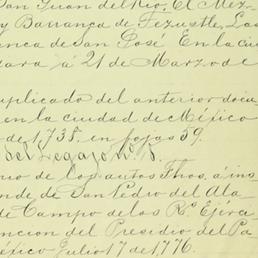 San Juan del Rio, El Mez-
y Barranca de Tezustle, Las
enca de San José. En la Ciu
dara á 21 de Marzo de
uplicado del anterior docu
en la ciudad de México
de 1,735. en fojas 59.
del Legajo Nº 5.
rio de los autos fhos. á ins
nde de San Pedro del Ala
de Campo de los Rs. Ejérci
ncion del Presidio del Pa
éxico Julio 17 de 1,776.